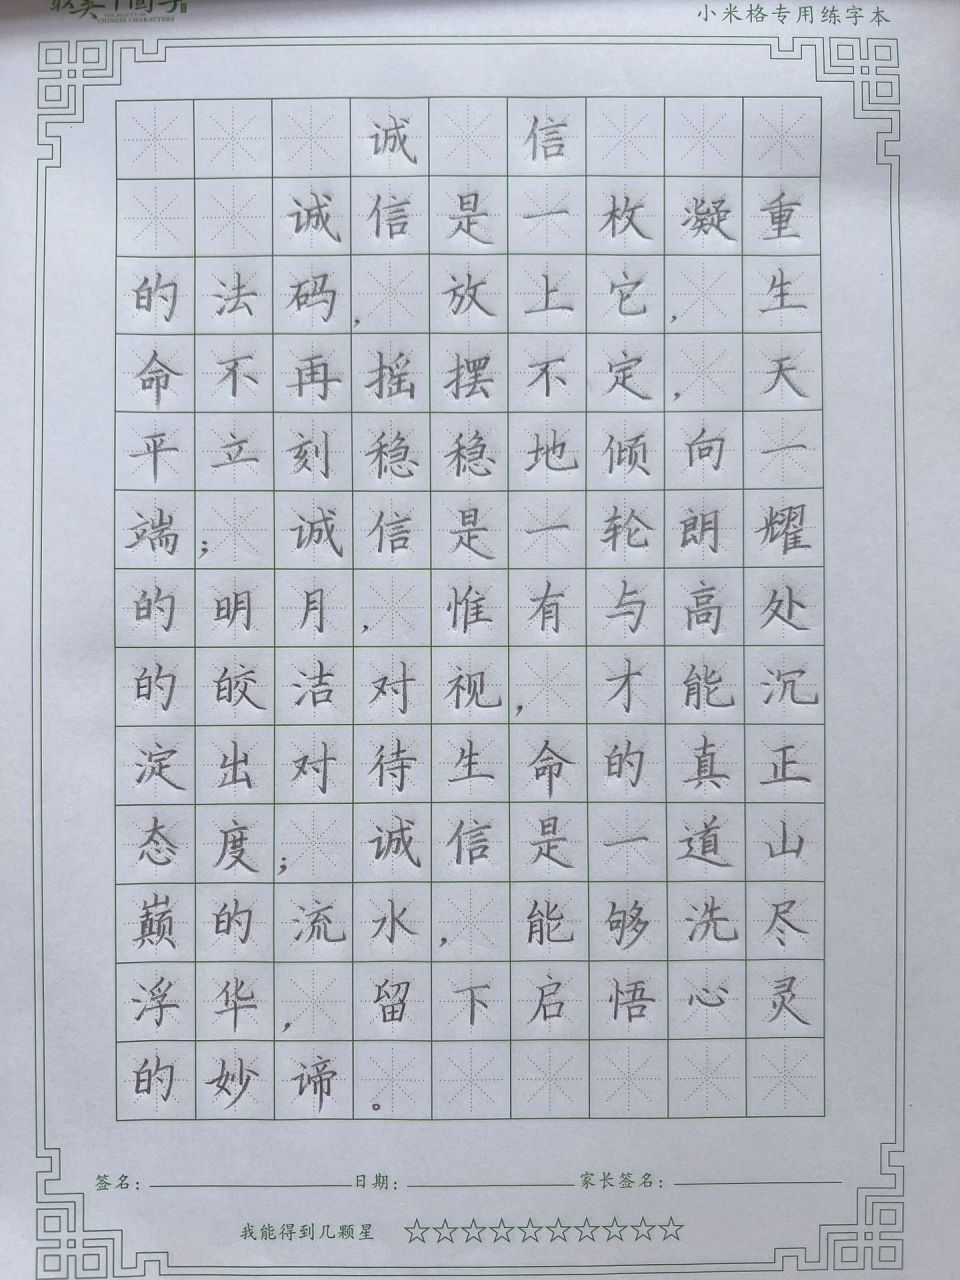 最美中国字
THE BEAUTY OF
CHINESE CHARACTERS
小米格专用练字本
诚 信
诚信是一枚凝重
的法码，放上它，生
命不再摇摆不定，天
平立刻稳稳地倾向一
端；诚信是一轮朗耀
的明月，惟有与高处
的皎洁对视，才能沉
淀出对待生命的真正
态度；诚信是一道山
巅的流水，能够洗尽
浮华，留下启悟心灵
的妙谛。
签名：日期：家长签名：
我能得到几颗星 ☆☆☆☆☆☆☆☆☆☆